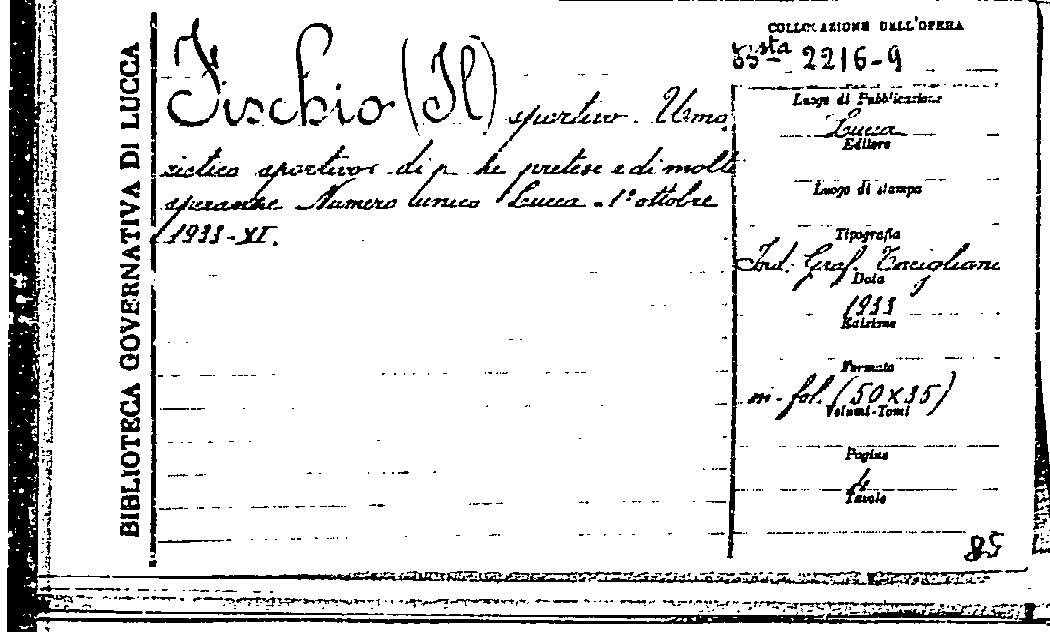 BIBLIOTECA GOVERNATIVA DI LUCCA
Fischio (Il) sportivo. Umo
ristico sportivo di p he pretese e di molte
speranze Numero unico Lucca - 1° ottobre
1933-XI.
COLLOCAZIONE DELL'OPERA
Bsta 2216-9
Luogo di Pubblicazione
Lucca
Editore
Luogo di stampa
Tipografia
Ind. Graf. Tocigliani
Data
1933
Edizione
Formato
in-fol. (50x35)
Volumi-Tomi
Pagine
4
Tavole
85